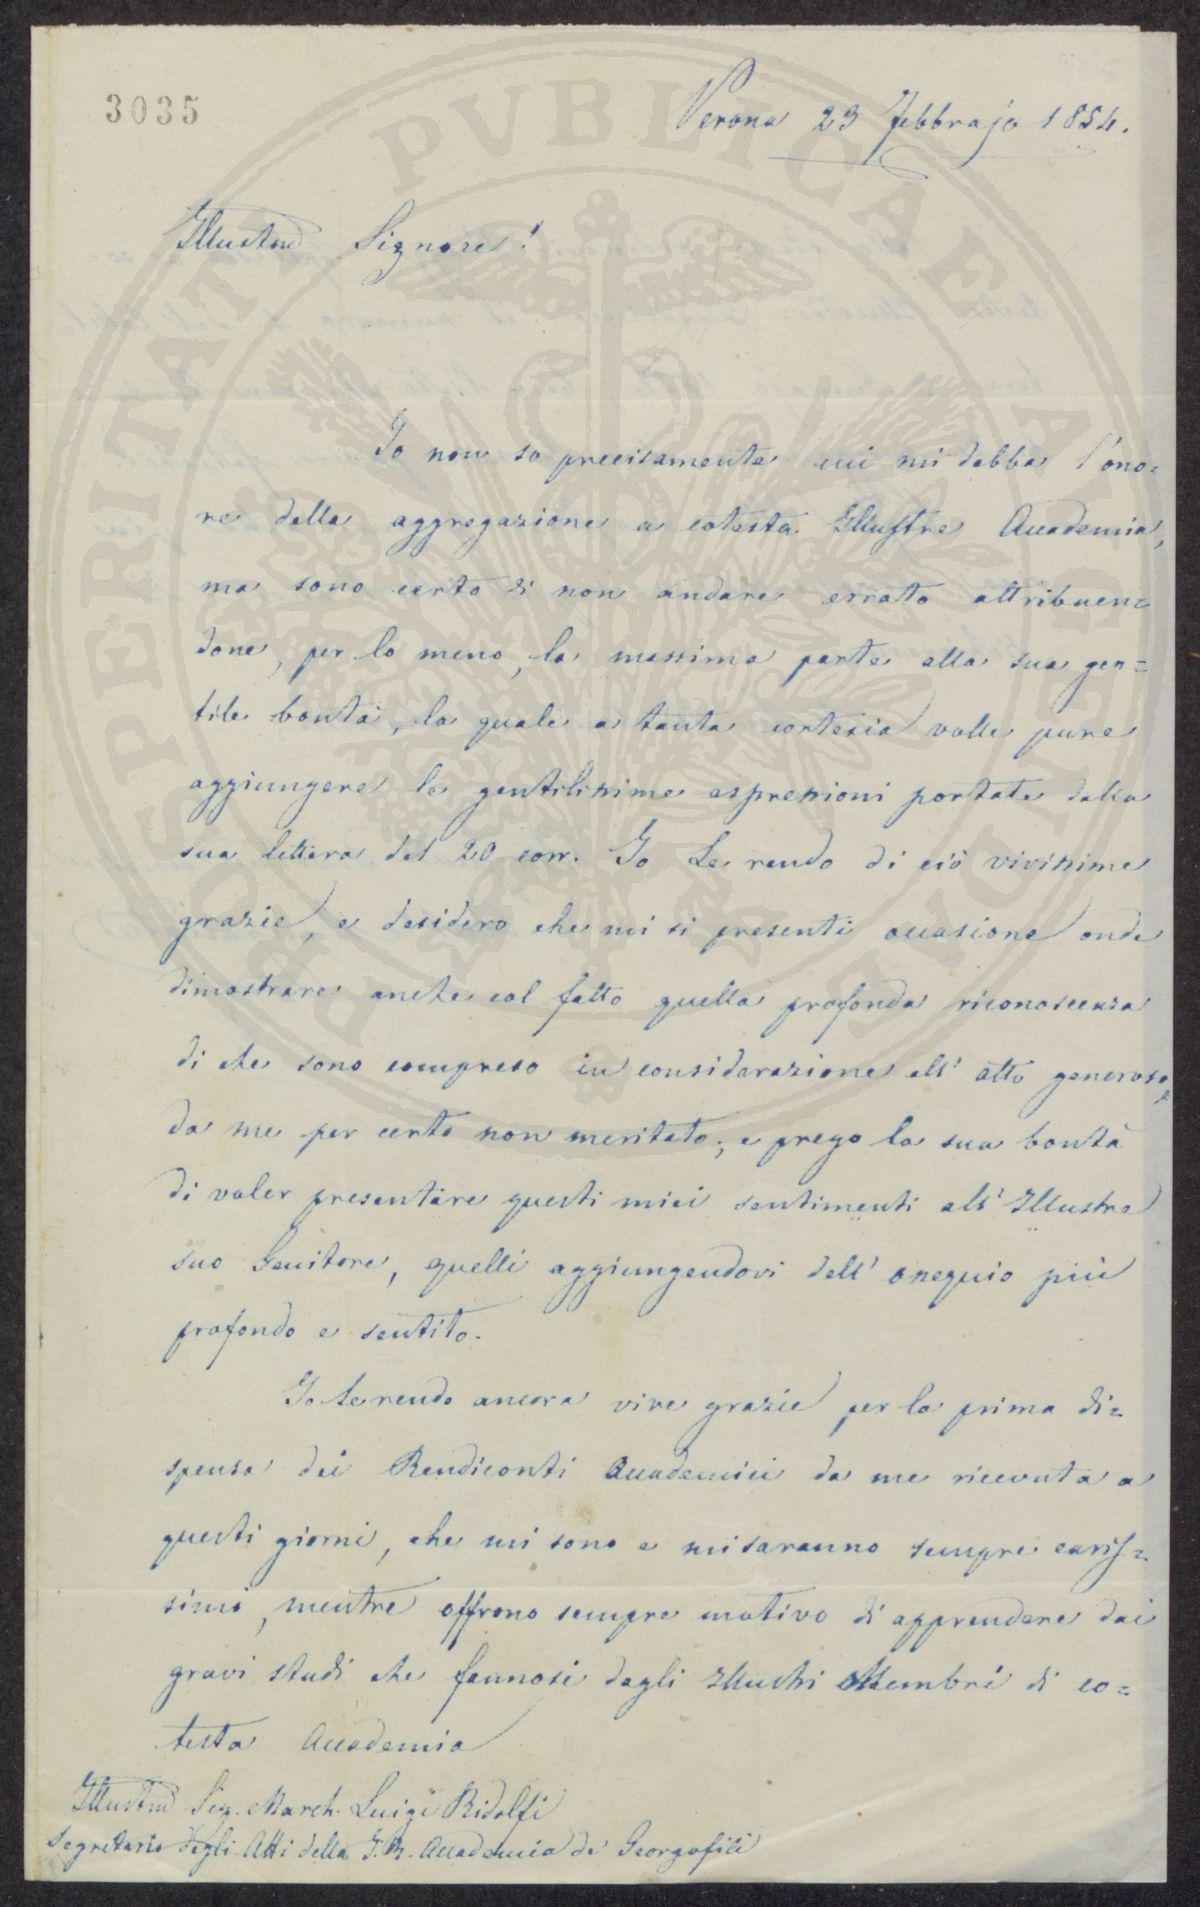 3035
Verona 23 Febbrajo 1854.
Illustmo Signore!
Io non so precisamente cui mi debba l'ono=
re della aggregazione a cotesta Illustre Accademia,
ma sono certo di non andare errato attribuen=
done, per lo meno, la massima parte alla sua gen=
tile bontà, la quale a tanta cortesia volle pure
aggiungere le gentilissime espressioni portate dalla
sua lettera del 20 corr. Io Le rendo di ciò vivissime
grazie, e desidero che mi si presenti occasione onde
dimostrare anche col fatto quella profonda riconoscenza
di che sono compreso in considerazione all' atto generoso,
da me per certo non meritato; e prego la sua bontà
di voler presentare questi miei sentimenti all' Illustre
suo Genitore, quelli aggiungendovi dell' ossequio più
profondo e sentito.
Io Le rendo ancora vive grazie per la prima di=
spensa dei Rendiconti Accademici da me ricevuta a
questi giorni, che mi sono e mi saranno sempre caris=
simi, mentre offrono sempre motivo di apprendere dai
gravi studi che fannosi dagli Illustri Membri di co=
testa Accademia
Illustmo Sig. March. Luigi Ridolfi
Segretario degli Atti della I. R. Accademia de' Georgofili
PROSPERITATI PVBLICAE AVGENDAE